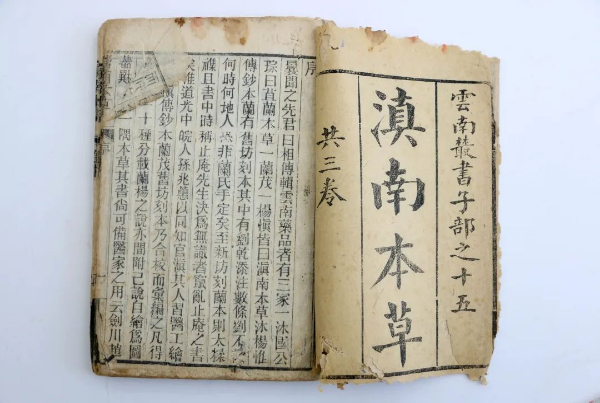 雲南叢書子部之十五
滇南本草
共三卷
序
曩聞之先君曰相傳輯雲南藥品者有三家一沐國公
琮曰苴蘭本草一蘭茂一楊慎皆曰滇南本草沐楊惟
傳鈔本蘭有舊坊刻本其中有劉乾添注數條劉不
何時何地人恐非蘭氏手定矣至新坊刻蘭本則太
襍且書中時稱止庵先生決爲無識者竄亂止庵之書
矣惟道光中皖人孫兆蕙以同知官滇其人習醫工繪
滇傳鈔本蘭茂舊坊刻本乃合校而彙編之凡得
十種分載蘭楊之說亦間附己說自繪爲圖
一隅本草其書尚可備醫家之用云劍川趙